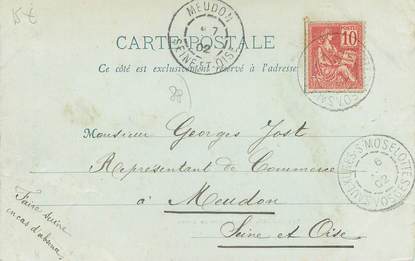 15€
MEUDON
7
02
SEINE-ET-OISE
CARTE POSTALE
Ce côté est exclusivement réservé à l'adresse
10
POSTES
SAULXURES-S-MOSELOTTE
6
02
VOSGES
28
Monsieur Georges Jost
Représentant de Commerce
à Meudon
Seine et Oise
Faire suivre
en cas d'absence